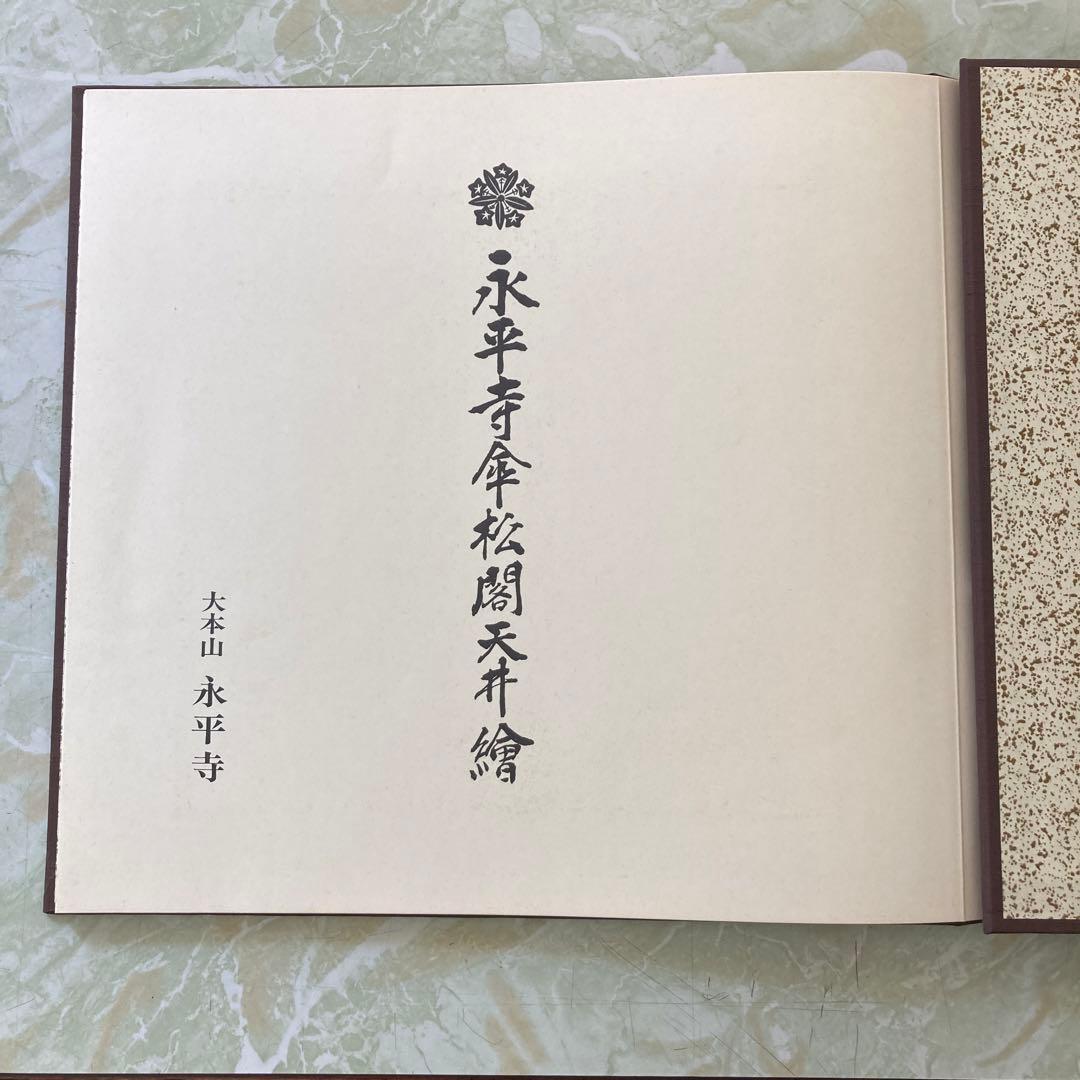 永平寺傘松閣天井繪
大本山 永平寺